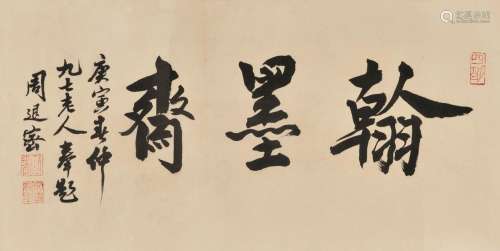 翰墨齋
庚寅春仲
九七老人奉題
周退密